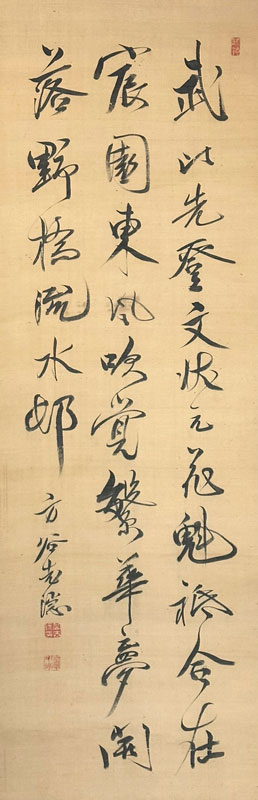 武比先登文状元花魁祗合在
宸園東風吹覚繁華夢開
落野橋流水邨
方谷老隠